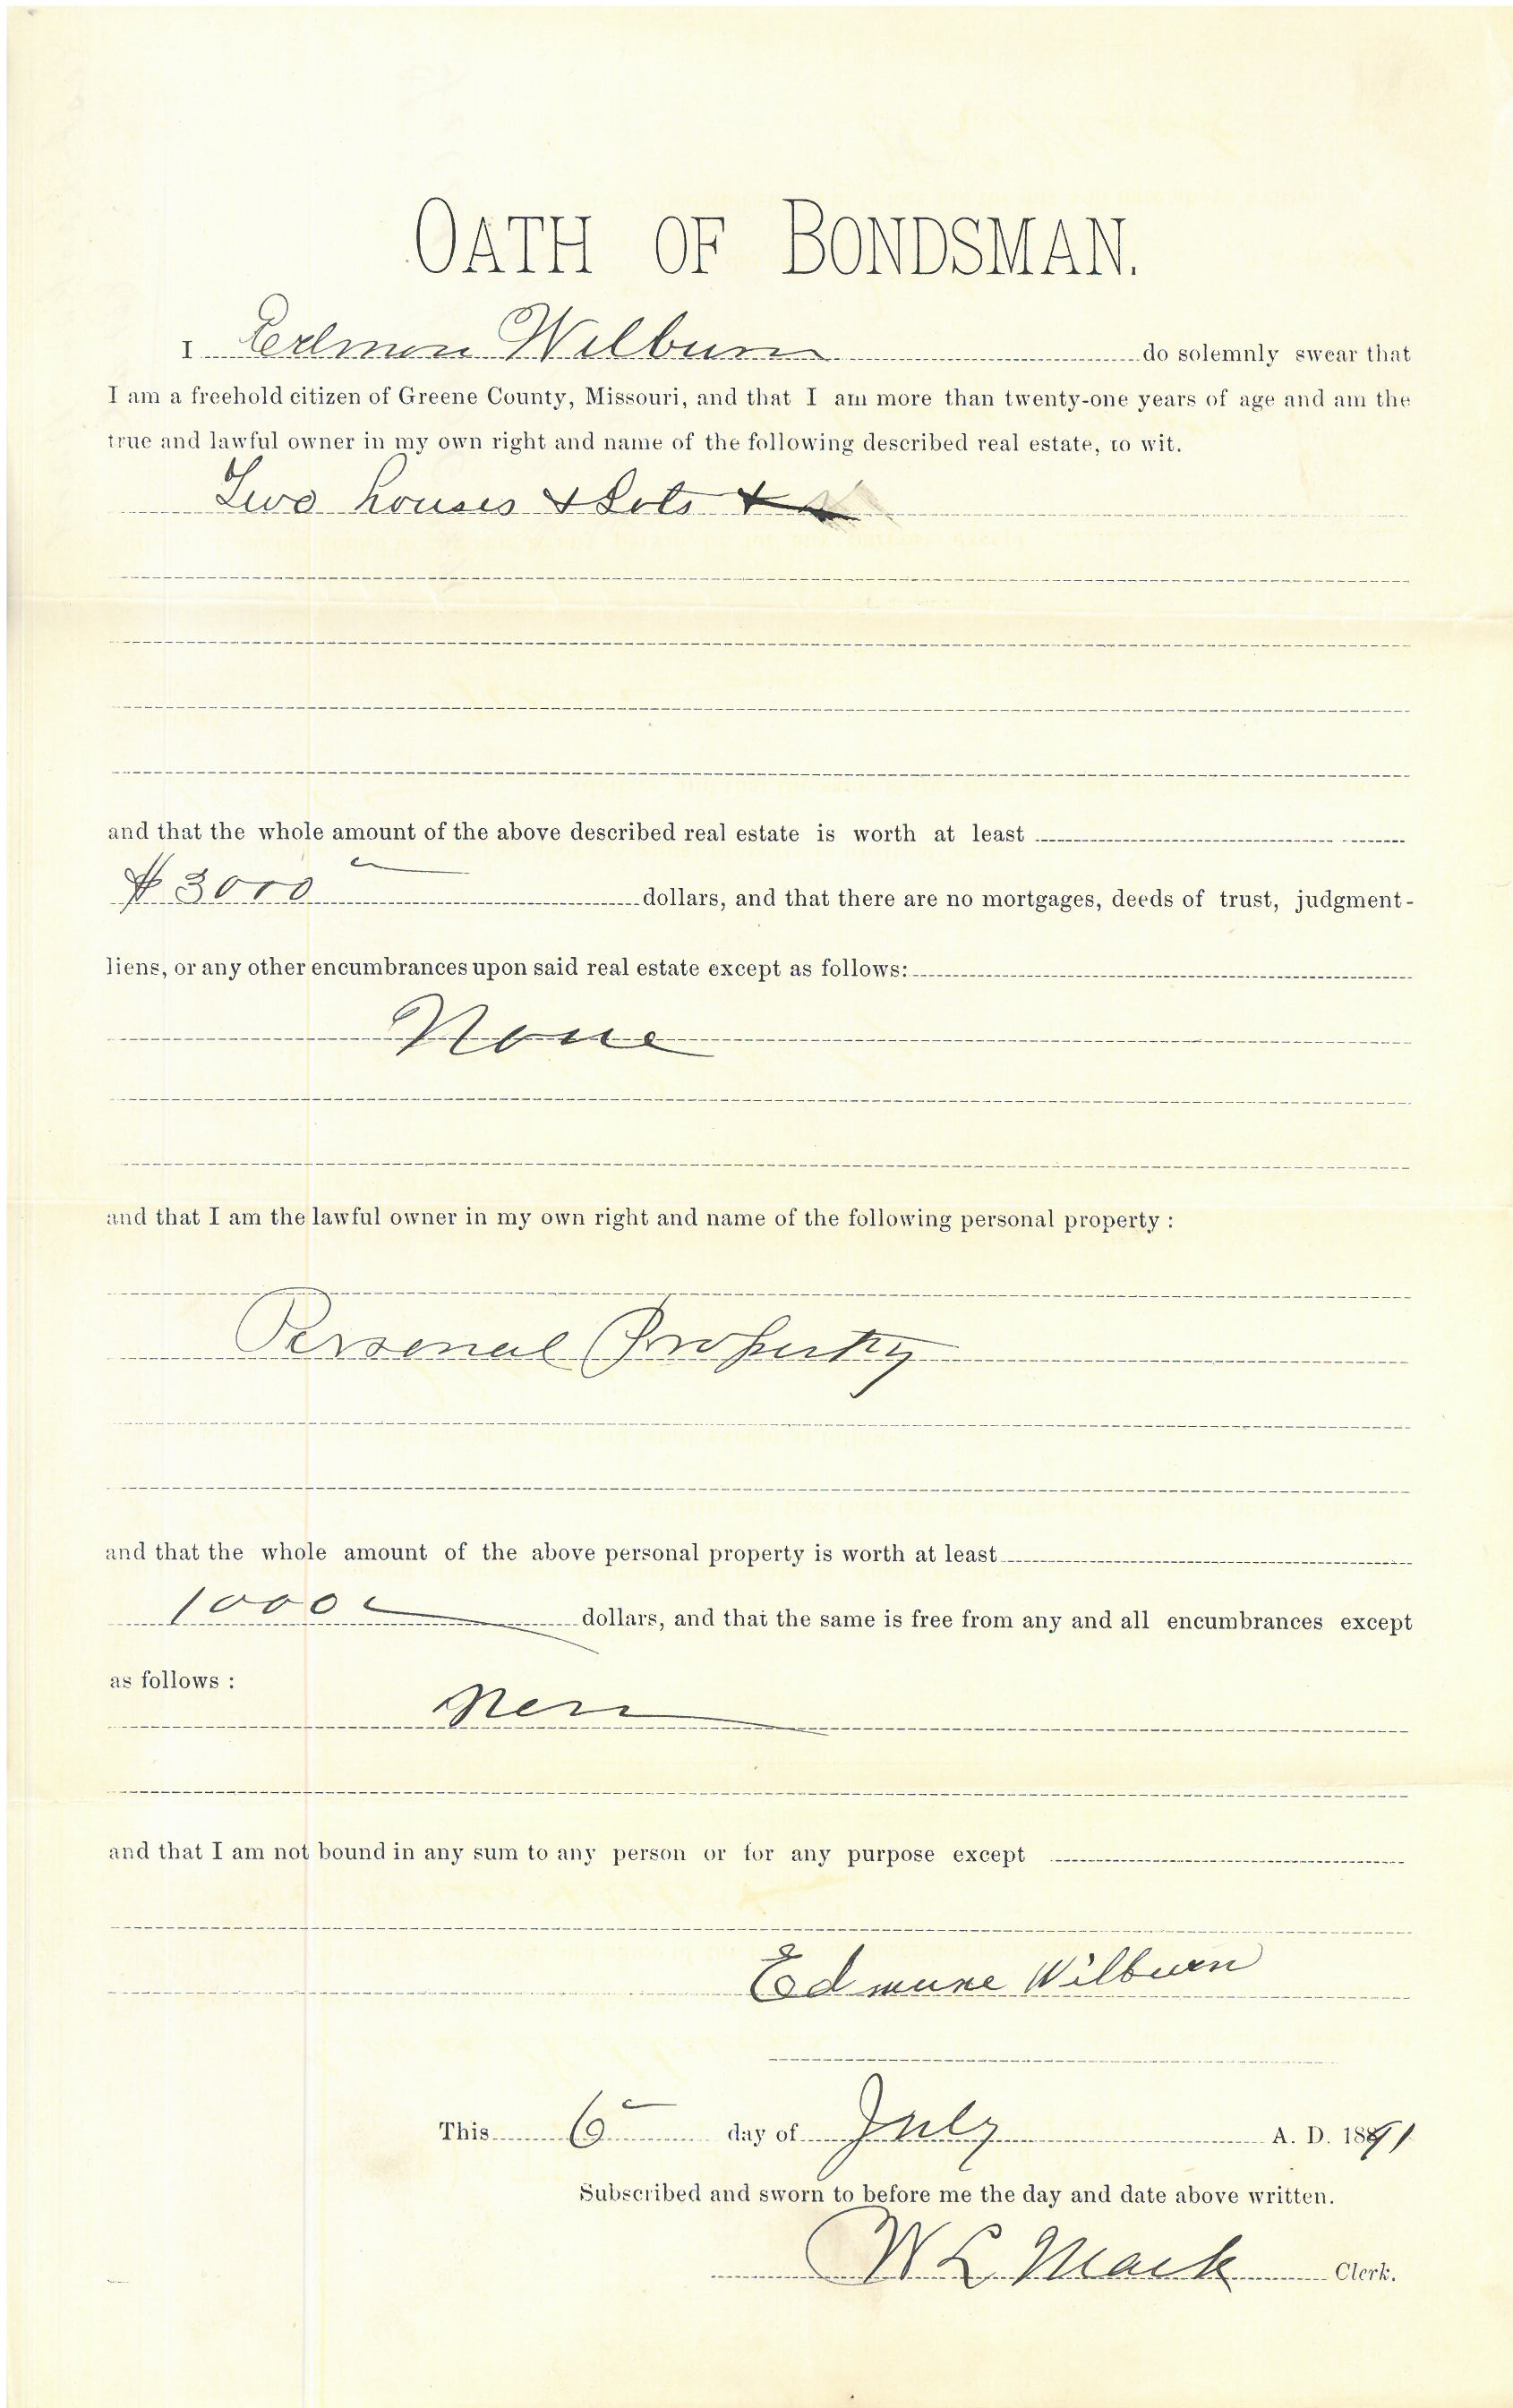 OATH OF BONDSMAN.
I Edmon Wilburn do solemnly swear that
I am a freehold citizen of Greene County, Missouri, and that I am more than twenty-one years of age and am the
true and lawful owner in my own right and name of the following described real estate, to wit.
Two houses & Lots &
and that the whole amount of the above described real estate is worth at least
$3000 dollars, and that there are no mortgages, deeds of trust, judgment-
liens, or any other encumbrances upon said real estate except as follows:
None
and that I am the lawful owner in my own right and name of the following personal property :
Personal Property
and that the whole amount of the above personal property is worth at least
1000 dollars, and that the same is free from any and all encumbrances except
as follows :
and that I am not bound in any sum to any person or for any purpose except
Edmune Wilburn
This 6 day of July A. D. 1891
Subscribed and sworn to before me the day and date above written.
W L Mack Clerk.